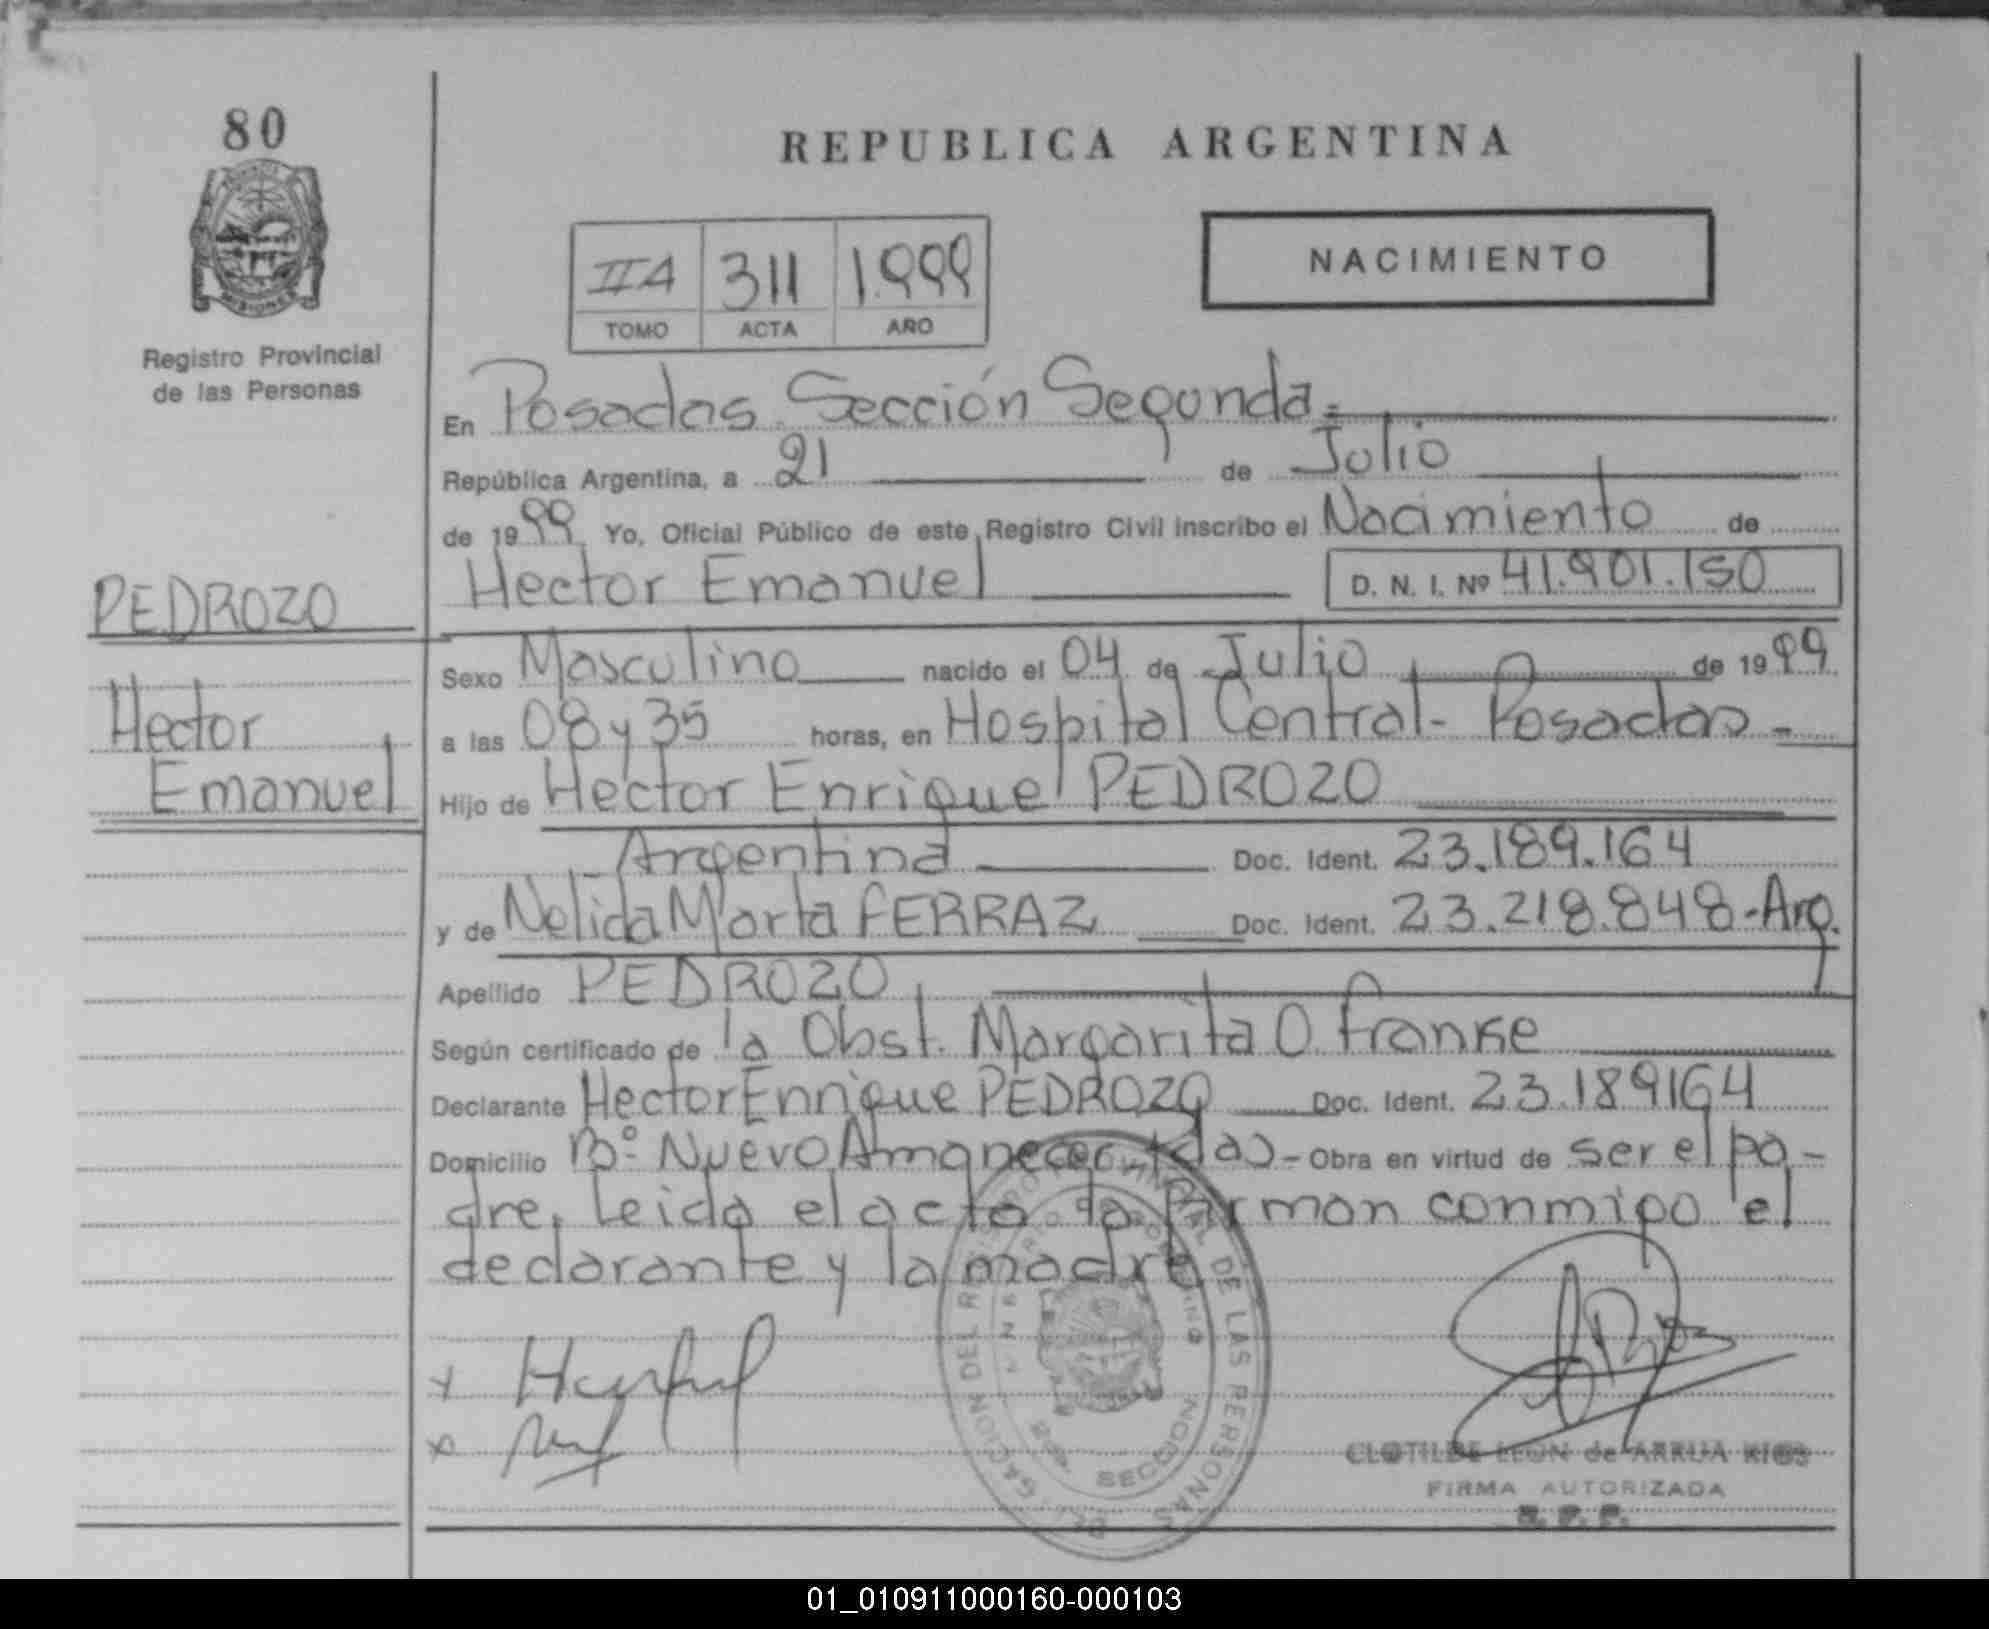 80
REPUBLICA ARGENTINA
MISIONES
Registro Provincial
de las Personas
IIA 311 1.999
TOMO ACTA AÑO
NACIMIENTO
En Posadas. Sección Segunda.=
República Argentina, a 21 de Julio
de 1999 Yo, Oficial Público de este Registro Civil inscribo el Nacimiento de
Hector Emanuel D. N. I. Nº 41.901.150
PEDROZO
Hector
Emanuel
Sexo Masculino nacido el 04 de Julio de 1999
a las 08 y 35 horas, en Hospital Central - Posadas -
Hijo de Hector Enrique PEDROZO
Argentina Doc. Ident. 23.189.164
y de Nelida Marta FERRAZ Doc. Ident. 23.218.848-Arg.
Apellido PEDROZO
Según certificado de la Obst. Margarita O. Franke
Declarante Hector Enrique PEDROZO Doc. Ident. 23.189164
Domicilio Bº Nuevo Amanecer - Obra en virtud de ser el pa-
dre, Leida el acta la firman conmigo el
declarante y la madre
DEL REGISTRO PROVINCIAL DE LAS PERSONAS
SECCION
CLOTILDE LEON de ARRUA RIOS
FIRMA AUTORIZADA
R. P. P.
01_010911000160-000103